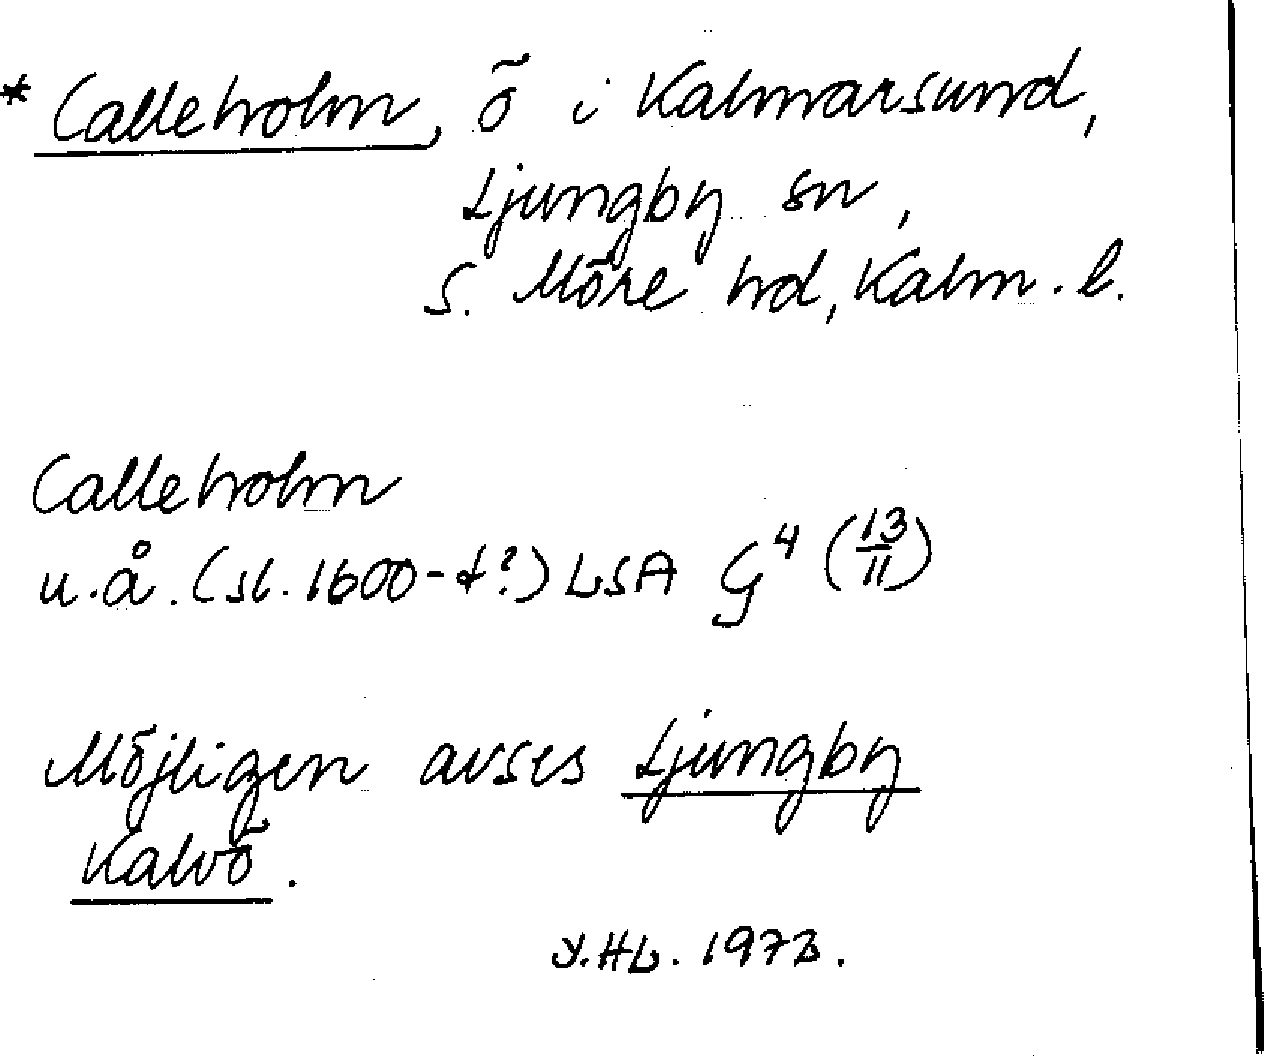 * Calleholm, ö i Kalmarsund,
Ljungby sn,
S. Möre hd, Kalm. l.
Calleholm
u.å. (sl. 1600-t?) LSA G⁴ (13/11)
Möjligen avses Ljungby
Kalvö.
Y.HL. 1973.